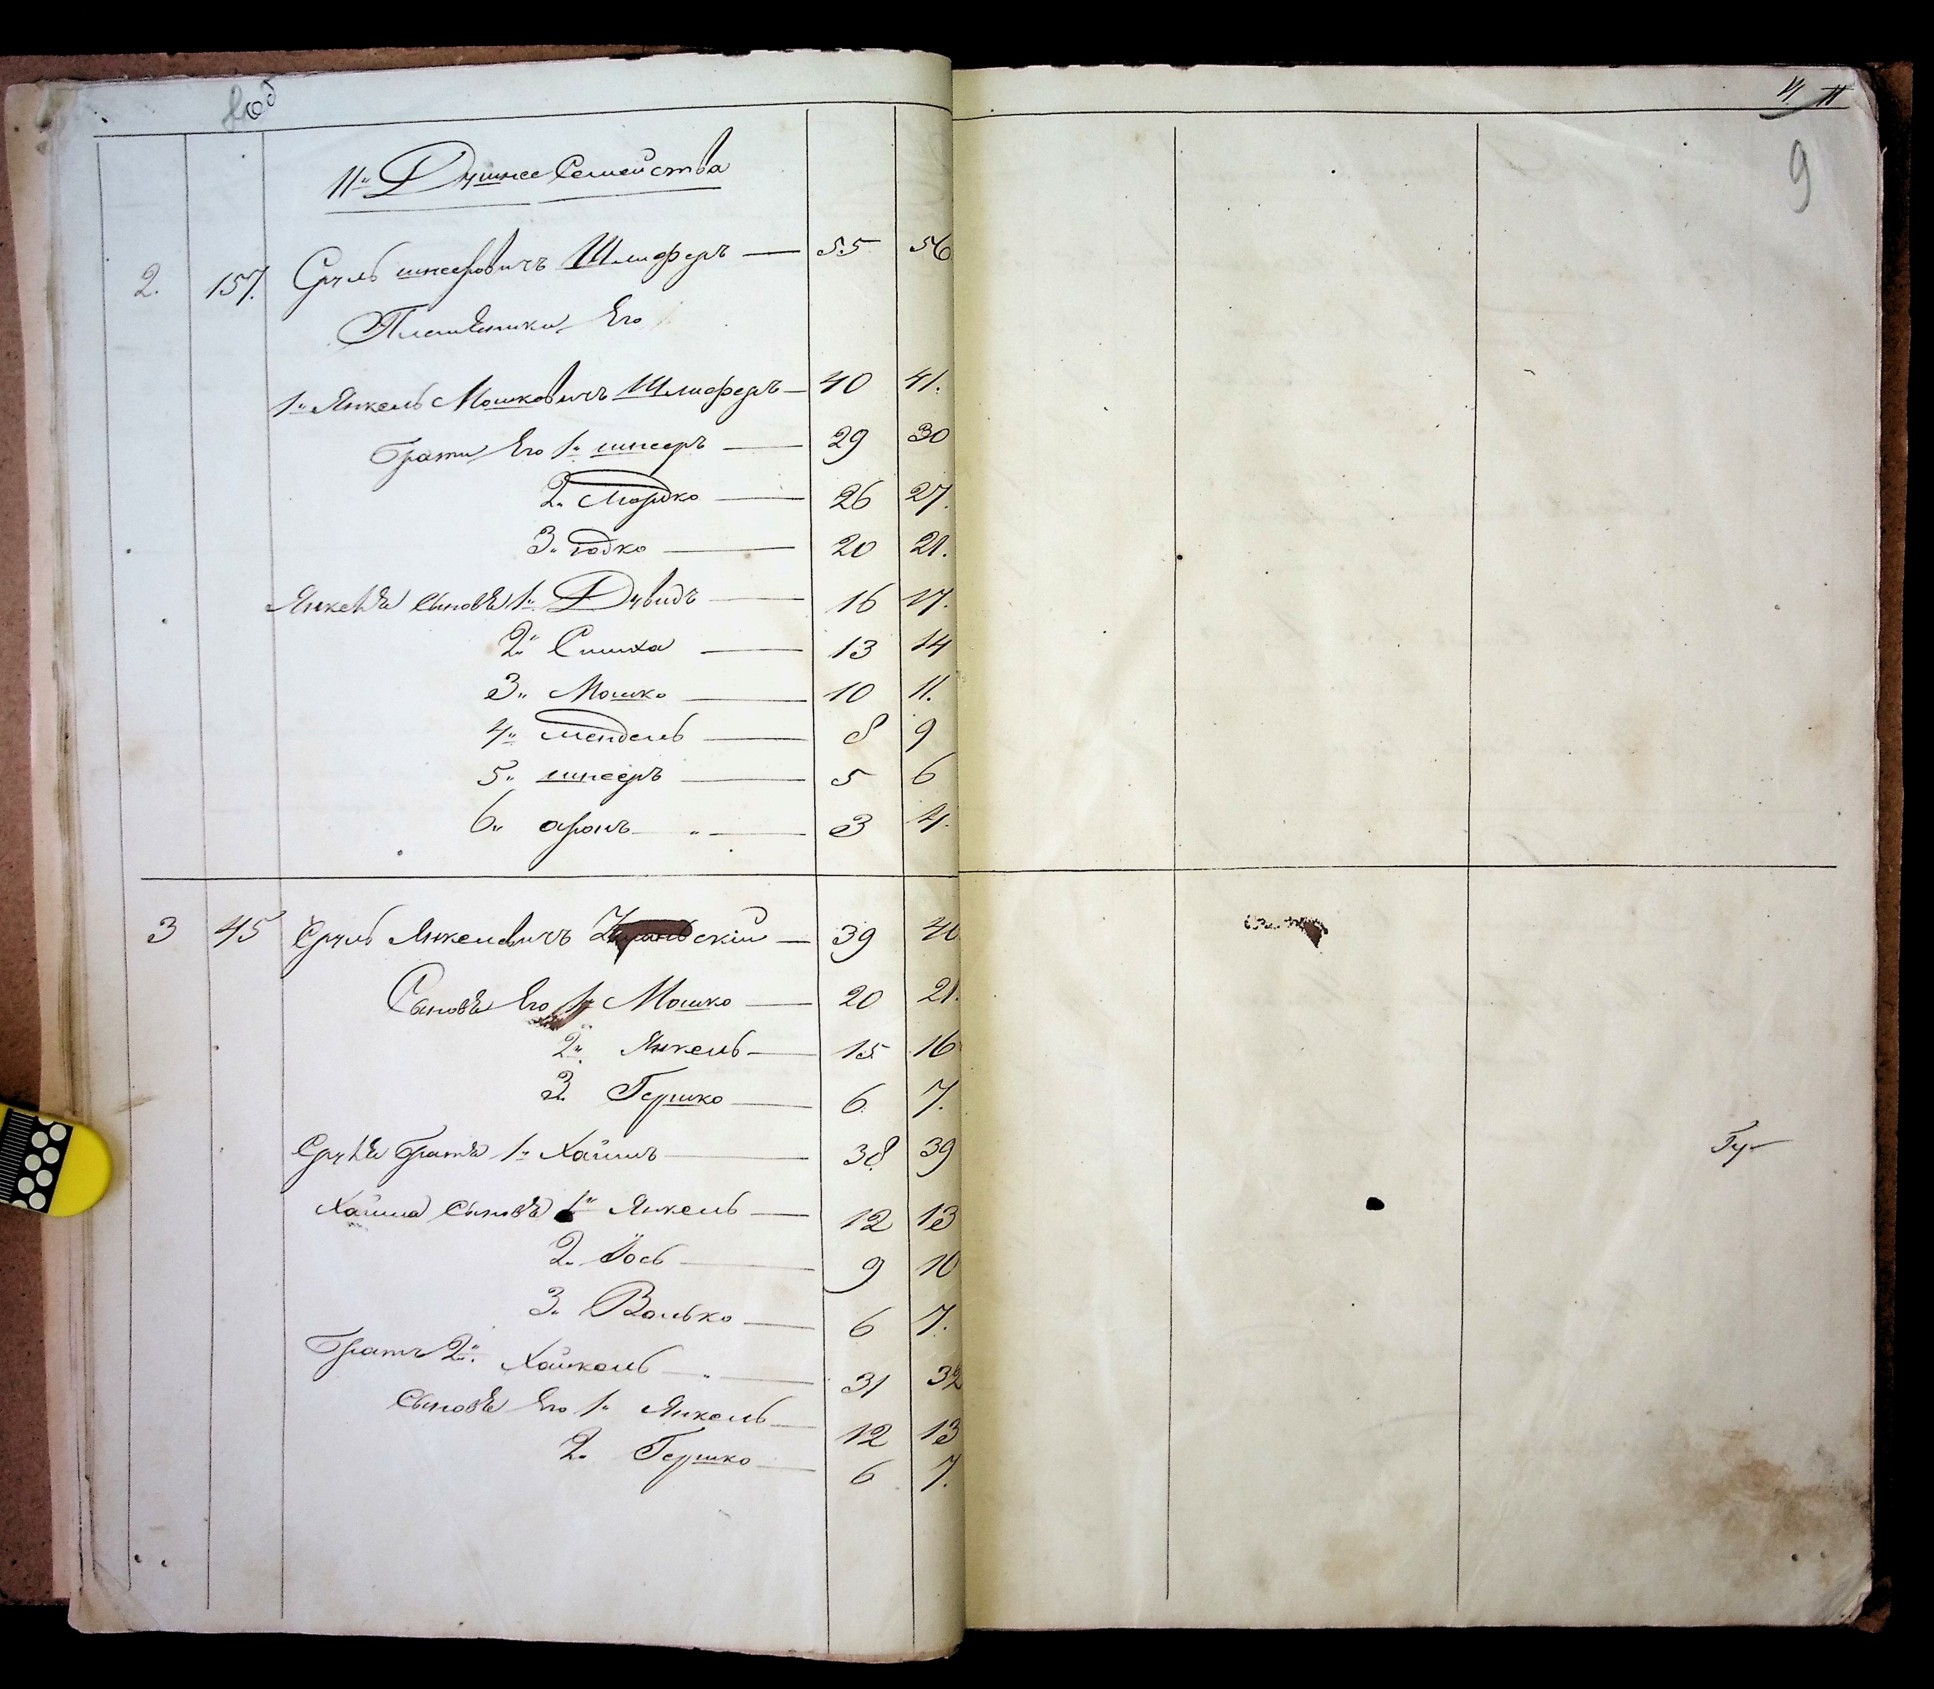 11ᵘ Душнее Семейства
2. 157. Сруль шнеерович​ъ Шлиферъ — 55 56
Племѣники Его
1ᵘ Янкель Мошковичъ Шлиферъ — 40 41.
Брати Его 1ᵘ шнееръ — 29 30
2. Мордко — 26 27.
3. Іодко — 20 21.
Янкеля сыновѣ 1ᵘ Дувидъ — 16 17.
2ᵘ Симха — 13 14
3ᵘ Мошко — 10 11.
4ᵘ мендель — 8 9
5ᵘ шнееръ — 5 6
6ᵘ аронъ — 3 4.
3 45 Сруль Янкелевичъ скій — 39 40
Сыновѣ Его 1 Мошко — 20 21.
2ᵘ Янкель — 15 16
3. Гершко — 6. 7.
Сруля Братъ 1ᵘ Хаимъ — 38 39
Хаима сыновѣ 1ᵘ Янкель — 12 13
2ᵘ Іось — 9 10
3ᵘ Волько — 6 7.
Братъ 2ᵘ. Хайкель — 31 32
сыновѣ Его 1ᵘ Янкель — 12 13
2. Гершко — 6 7.
9